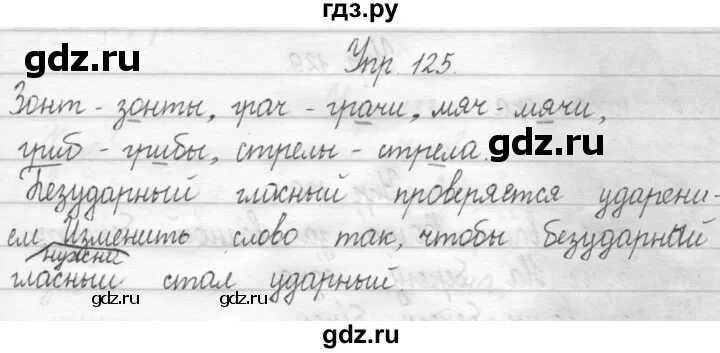 гдз.ру
gdz.ru
gdz.ru
Упр. 125.
Зонт - зонты, грач - грачи, мяч - мячи,
gdz.ru
гриб - грибы, стрелы - стрела.
Безударный гласный проверяется ударени-
ем. Изменить слово так, чтобы безударный
нужно
гласный стал ударный.
gdz.ru
gdz.ru
gdz.ru